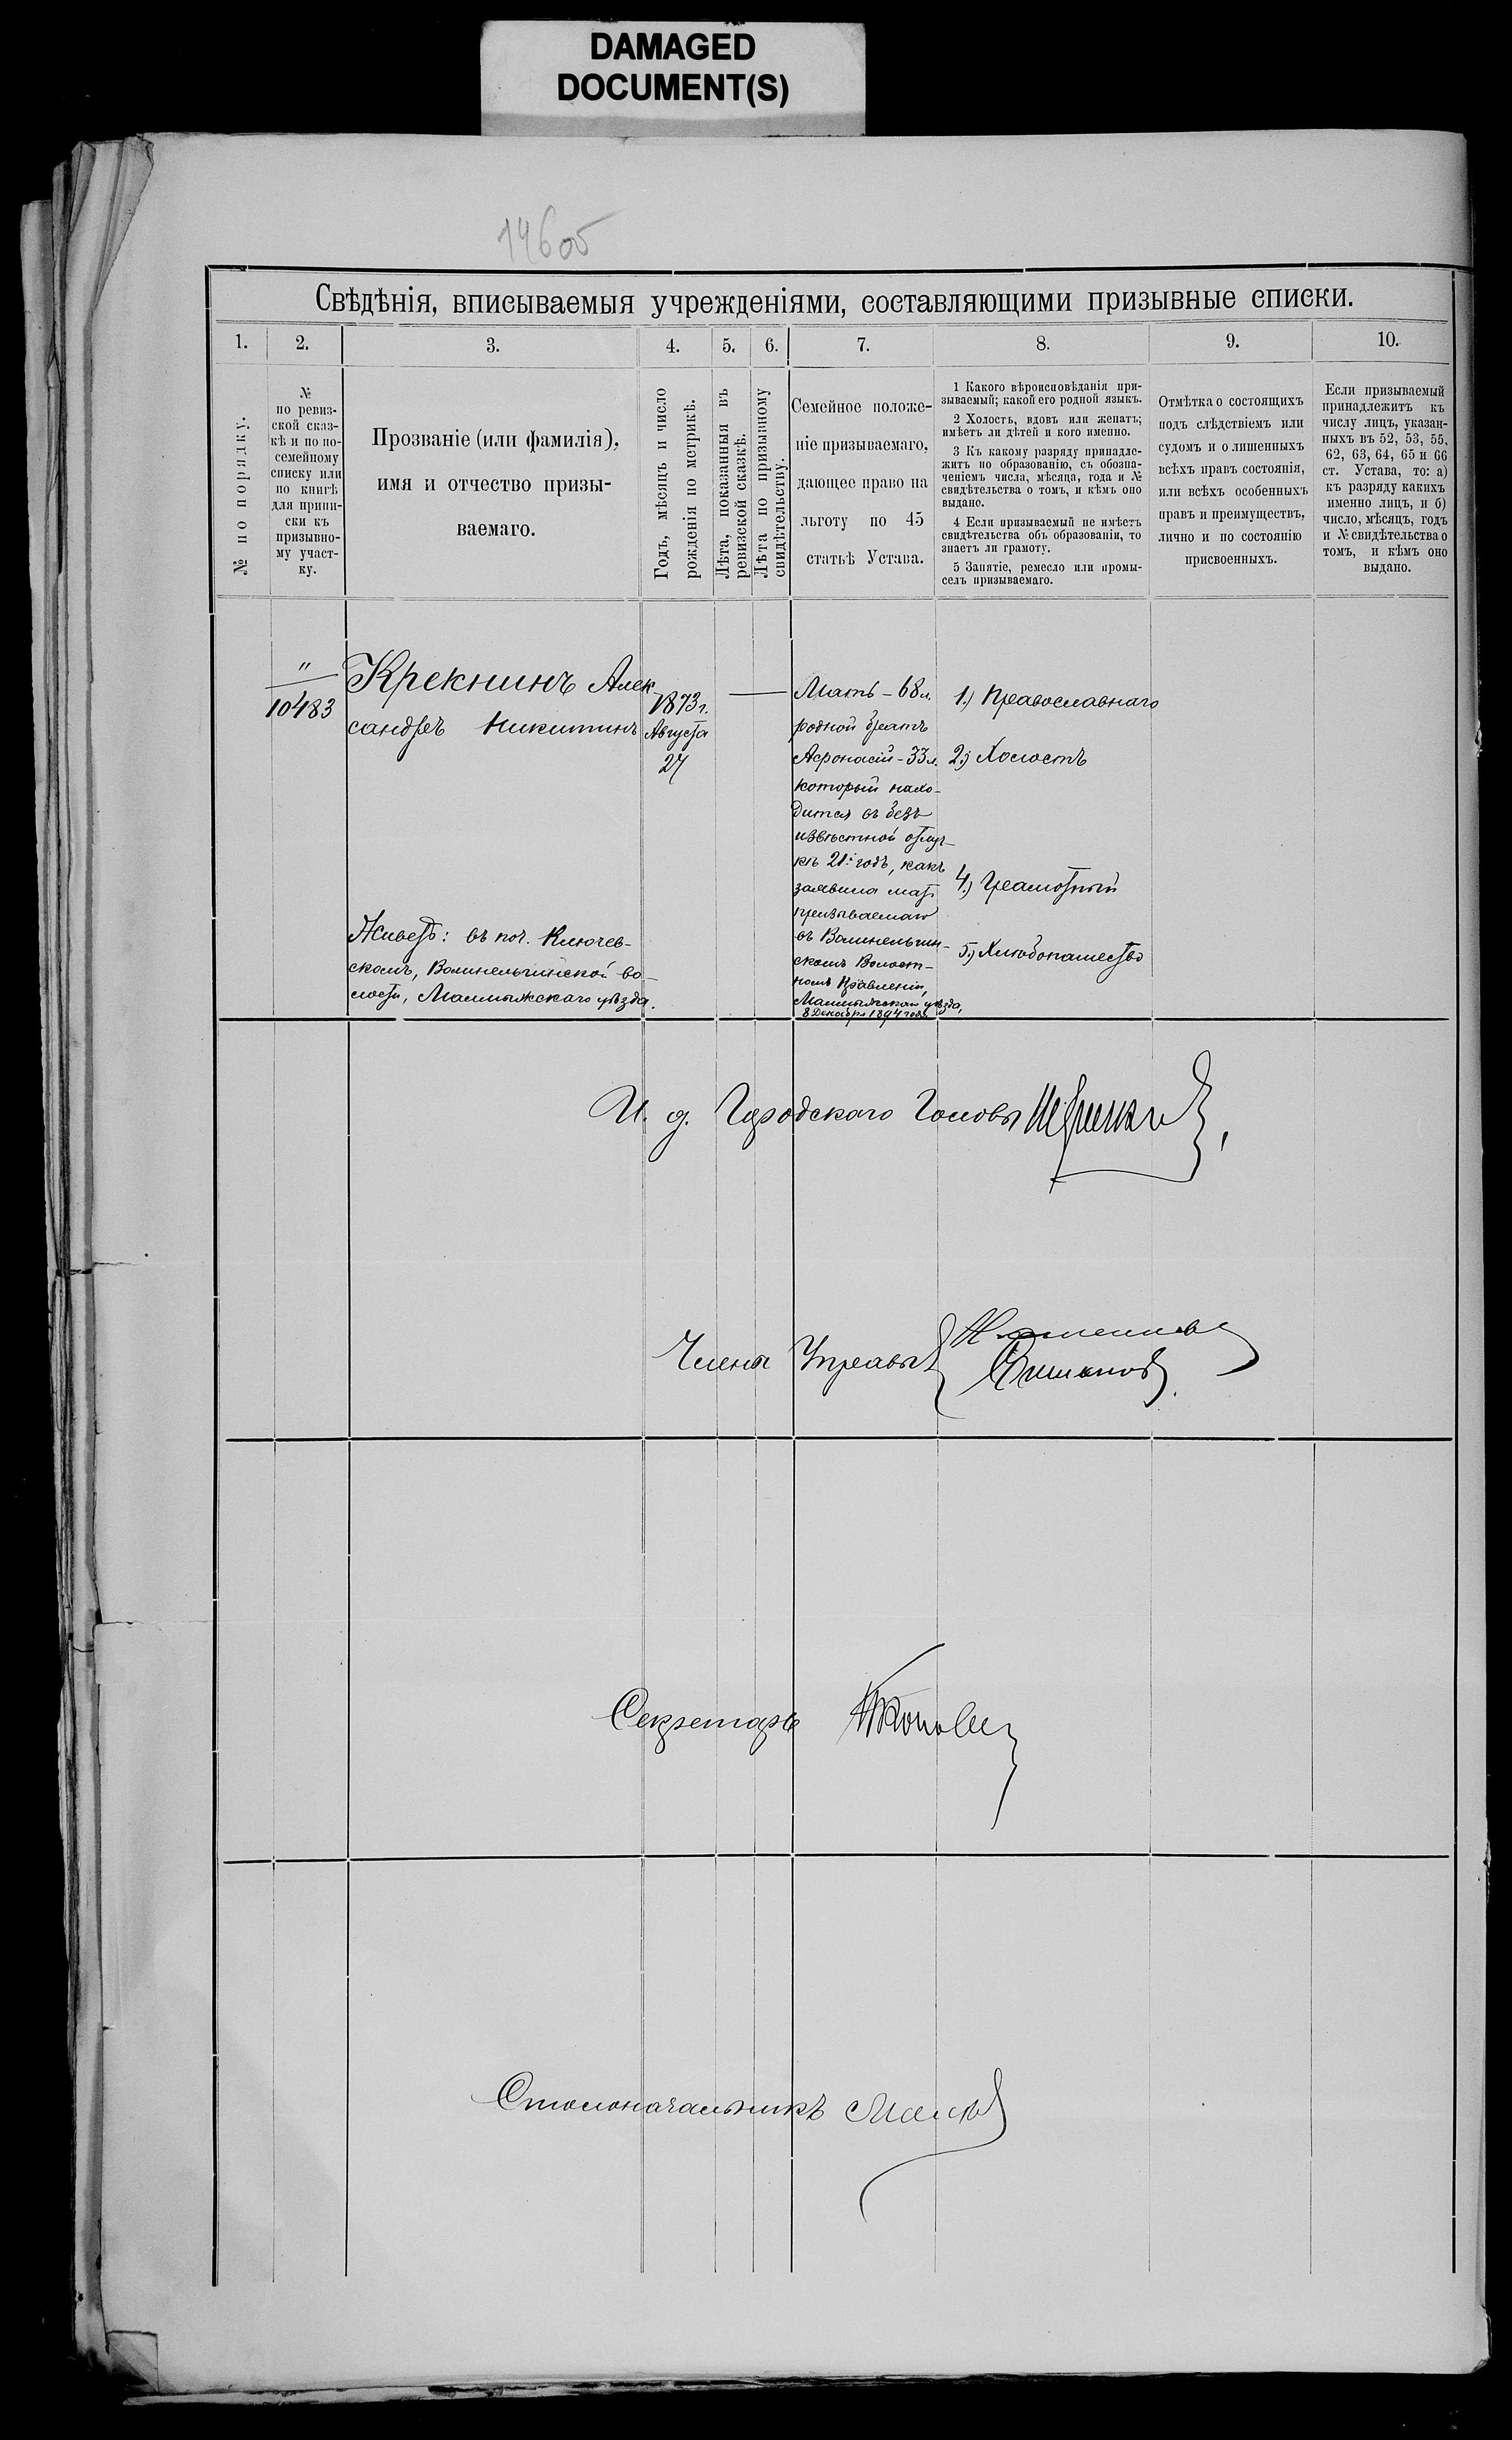 DAMAGED
DOCUMENT(S)
14605
Свѣдѣнія, вписываемыя учрежденіями, составляющими призывные списки.
1.
2.
3.
4.
5.
6.
7.
8.
9.
10.
№ по порядку.
№
по ревиз-
ской сказ-
кѣ и по по-
семейному
списку или
по книгѣ
для припи-
ски къ
призывно-
му участ-
ку.
Прозваніе (или фамилія),
имя и отчество призы-
ваемаго.
Годъ, мѣсяцъ и число
рожденія по метрикѣ.
Лѣта, показанныя въ
ревизской сказкѣ.
Лѣта по призывному
свидѣтельству.
Семейное положе-
ніе призываемаго,
дающее право на
льготу по 45
статьѣ Устава.
1 Какого вѣроисповѣданія при-
зываемый; какой его родной языкъ.
2 Холостъ, вдовъ или женатъ;
имѣетъ ли дѣтей и кого именно.
3 Къ какому разряду принадле-
житъ по образованію, съ обозна-
ченіемъ числа, мѣсяца, года и №
свидѣтельства о томъ, и кѣмъ оно
выдано.
4 Если призываемый не имѣетъ
свидѣтельства объ образованіи, то
знаетъ ли грамоту.
5 Занятіе, ремесло или промы-
селъ призываемаго.
Отмѣтка о состоящихъ
подъ слѣдствіемъ или
судомъ и о лишенныхъ
всѣхъ правъ состоянія,
или всѣхъ особенныхъ
правъ и преимуществъ,
лично и по состоянію
присвоенныхъ.
Если призываемый
принадлежитъ къ
числу лицъ, указан-
ныхъ въ 52, 53, 55,
62, 63, 64, 65 и 66
ст. Устава, то: а)
къ разряду какихъ
именно лицъ, и б)
число, мѣсяцъ, годъ
и № свидѣтельства о
томъ, и кѣмъ оно
выдано.
"
10483
Крекнинъ Алек-
сандръ Никитинъ
Живетъ: въ поч. Ключев-
скомъ, Волипельгинской во-
лости, Малмыжскаго уѣзда.
1873 г.
Августа
27
Мать - 68 л.
родной братъ
Афонасій - 33 л.
который нахо-
дится въ безъ
извѣстной отлуч-
кѣ 21й годъ, какъ
заявила мать
призываемаго
въ Волипельгин-
скомъ Волост-
номъ Правленіи,
Малмыжскаго уѣзда,
8 Декабря 1894 года
1.) Православнаго
2.) Холостъ
4.) Грамотный
5.) Хлѣбопашество
И. д. Городскаго Головы
Члены Управы
Секретарь
Столоначальникъ